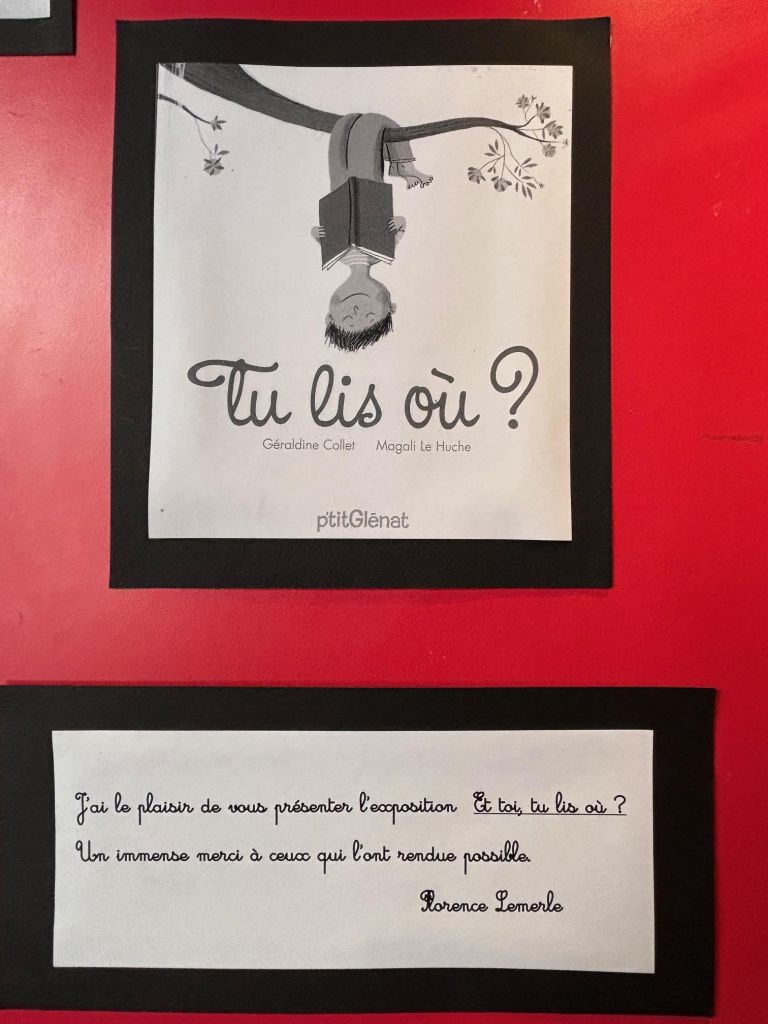 Tu lis où ?
Géraldine Collet Magali Le Huche
p'titGlénat
J'ai le plaisir de vous présenter l'exposition Et toi, tu lis où ?
Un immense merci à ceux qui l'ont rendue possible.
Florence Lemerle